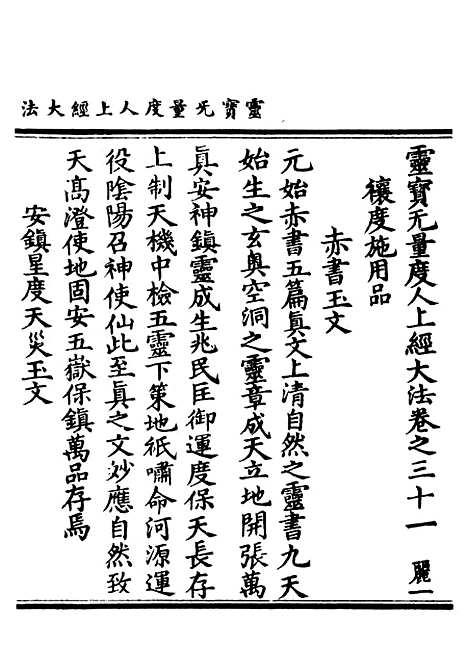 靈寶无量度人上經大法
靈寶无量度人上經大法卷之三十一 麗一
禳度施用品
赤書玉文
元始赤書五篇眞文上清自然之靈書九天
始生之玄奥空洞之靈章成天立地開張萬
眞安神鎮靈成生兆民匡御運度保天長存
上制天機中檢五靈下策地祇嘯命河源運
役陰陽召神使仙此至眞之文妙應自然致
天髙澄使地固安五嶽保鎮萬品存焉
安鎮星度天災玉文